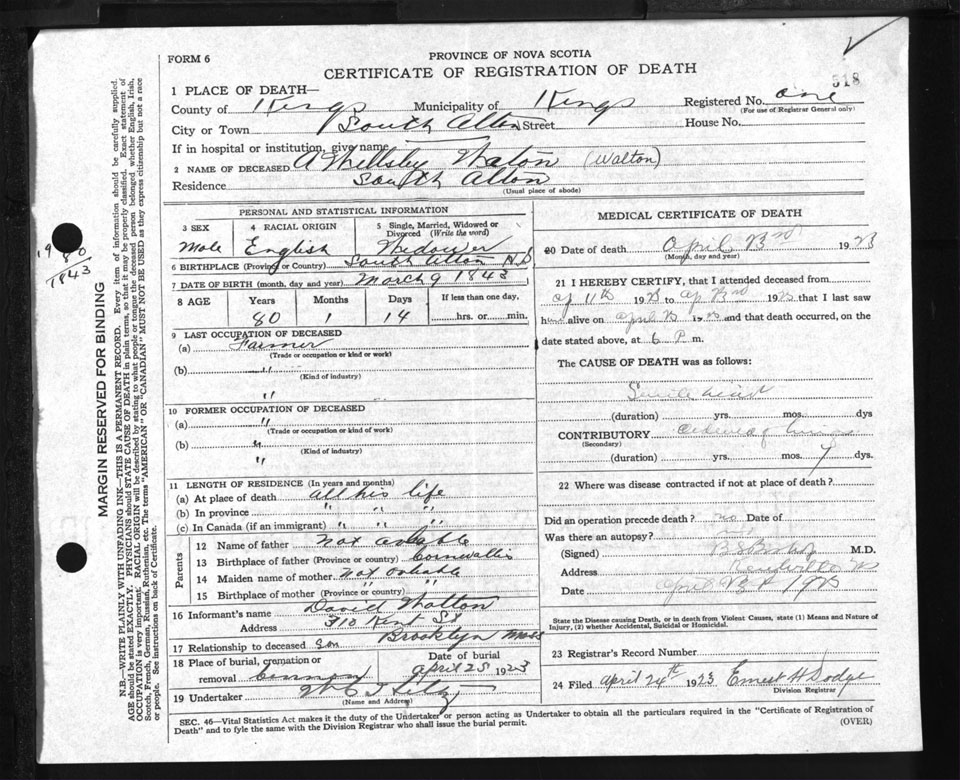 FORM 6
PROVINCE OF NOVA SCOTIA
CERTIFICATE OF REGISTRATION OF DEATH
518
1 PLACE OF DEATH—
County of Kings Municipality of Kings Registered No. one
(For use of Registrar General only)
City or Town South Alton Street House No.
If in hospital or institution, give name
2 NAME OF DECEASED A Wellsley Walton (Walton)
Residence South Alton
(Usual place of abode)
PERSONAL AND STATISTICAL INFORMATION
3 SEX 4 RACIAL ORIGIN 5 Single, Married, Widowed or Divorced (Write the word)
Male English Widower
6 BIRTHPLACE (Province or Country) South Alton N.S
7 DATE OF BIRTH (month, day and year) March 9 1843
8 AGE Years Months Days If less than one day.
80 1 14 hrs. or min.
9 LAST OCCUPATION OF DECEASED
(a) Farmer
(Trade or occupation or kind or work)
(b) "
(Kind of industry)
"
10 FORMER OCCUPATION OF DECEASED
(a) "
(Trade or occupation or kind of work)
(b) "
(Kind of industry)
"
11 LENGTH OF RESIDENCE (In years and months)
(a) At place of death all his life
(b) In province " " "
(c) In Canada (if an immigrant) " " "
Parents
12 Name of father not
13 Birthplace of father (Province or country) Cornwallis
14 Maiden name of mother not
15 Birthplace of mother (Province or country) " "
16 Informant's name David Walton
Address 310 Kent St
Brooklyn Mass
17 Relationship to deceased Son
18 Place of burial, cremation or removal Date of burial
April 25 1923
19 Undertaker
(Name and Address)
MEDICAL CERTIFICATE OF DEATH
20 Date of death April 23rd 1923
(Month, day and year)
21 I HEREBY CERTIFY, that I attended deceased from
Ap 11th 1923 to Ap 23rd 1923 that I last saw
him alive on April 23 1923 and that death occurred, on
date stated above, at 6 P. m.
The CAUSE OF DEATH was as follows:
Senile heart
(duration) yrs. mos. dys
CONTRIBUTORY
(Secondary)
(duration) yrs. mos. 7 dys.
22 Where was disease contracted if not at place of death?
Did an operation precede death? no Date of
Was there an autopsy?
(Signed) M.D.
Address Kentville NS
Date April 1923
State the Disease causing Death, or in death from Violent Causes, state (1) Means and Nature of
Injury, (2) whether Accidental, Suicidal or Homicidal.
23 Registrar's Record Number
24 Filed April 24th 1923 Ernest H Dodge
Division Registrar
SEC. 46—Vital Statistics Act makes it the duty of the Undertaker or person acting as Undertaker to obtain all the particulars required in the "Certificate of Registration of
Death" and to fyle the same with the Division Registrar who shall issue the burial permit. (OVER)
80
1843
MARGIN RESERVED FOR BINDING
N.B.—WRITE PLAINLY WITH UNFADING INK—THIS IS A PERMANENT RECORD. Every item of information should be carefully supplied.
AGE should be stated EXACTLY. PHYSICIANS should STATE CAUSE OF DEATH in plain terms, so that it may be properly classified. Exact statement of
OCCUPATION is very important. RACIAL ORIGIN will be described by stating to what people or tongue the deceased person belonged whether English, Irish,
Scotch, French, German, Russian, Ruthenian, etc. The terms "AMERICAN" OR "CANADIAN" MUST NOT BE USED as they express citizenship but not a race
or people. See instructions on back of Certificate.